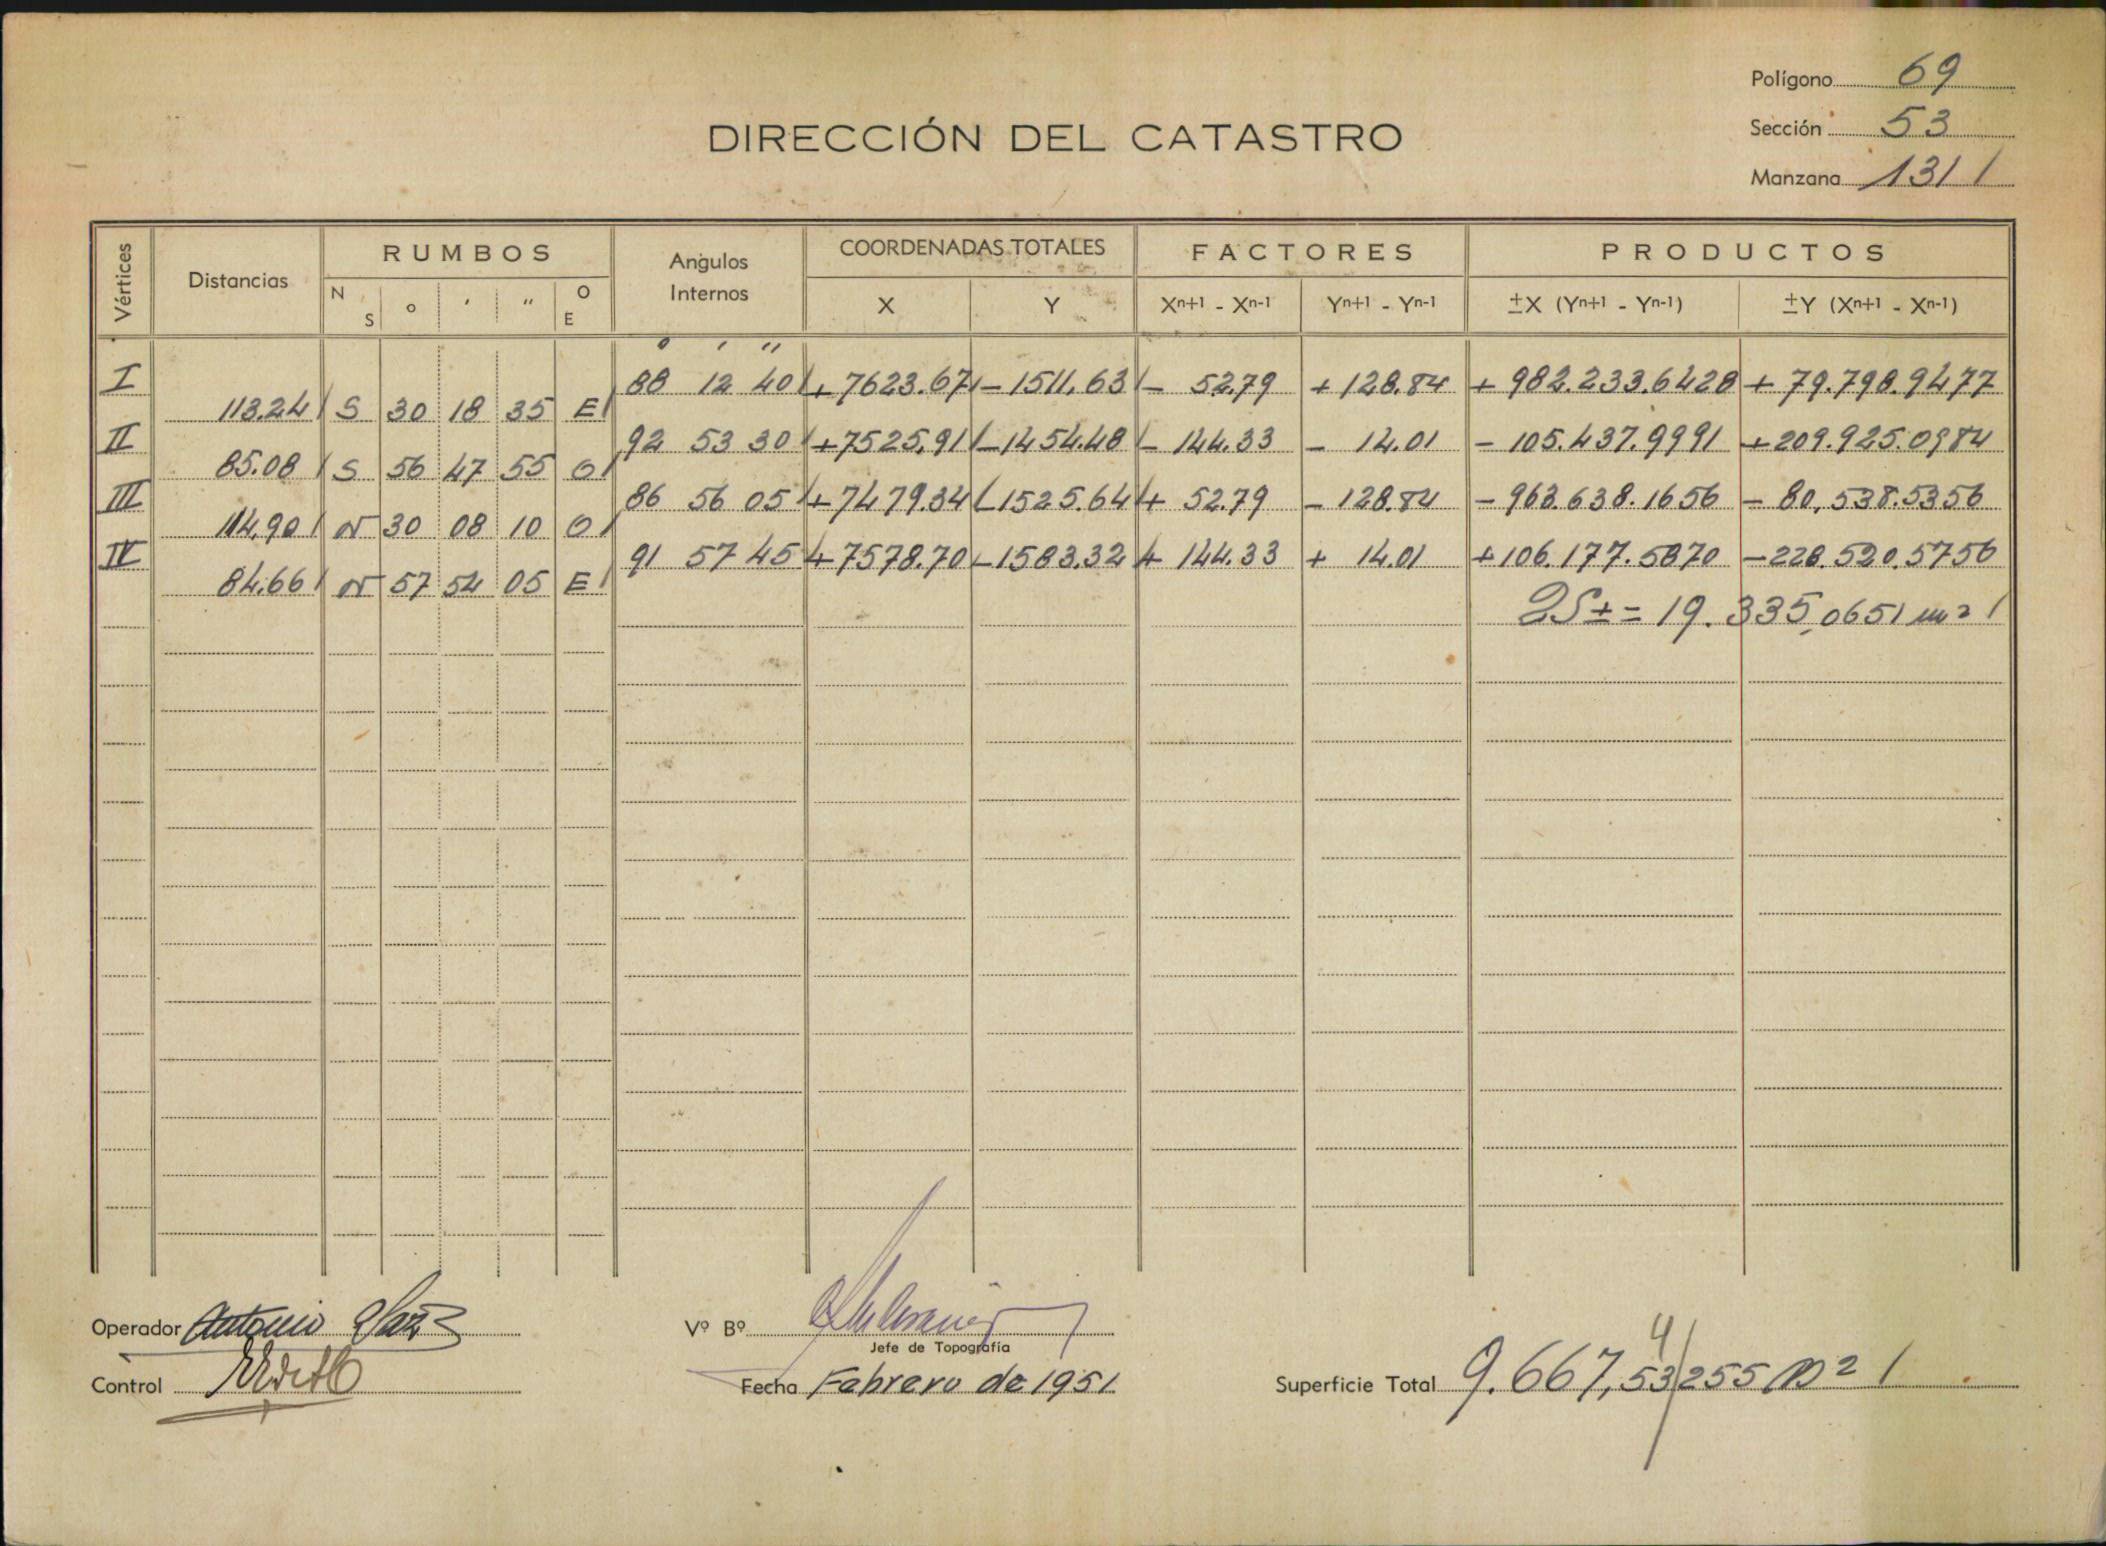 Polígono 69
DIRECCIÓN DEL CATASTRO
Sección 53
Manzana 1311
Vértices Distancias RUMBOS Angulos Internos COORDENADAS TOTALES FACTORES PRODUCTOS
N S o ' " O E X Y Xn+1 - Xn-1 Yn+1 - Yn-1 ±X (Yn+1 - Yn-1) ±Y (Xn+1 - Xn-1)
° ' "
I 88 12 40 +7623.67 -1511.63 - 52.79 + 128.84 + 982.233.6428 + 79.798.9477
113.24 S 30 18 35 E
II 92 53 30 +7525.91 -1454.48 - 144.33 - 14.01 - 105.437.9991 +209.925.0984
85.08 S 56 47 55 O
III 86 56 05 +7479.34 -1525.64 + 52.79 - 128.84 - 963.638.1656 - 80.538.5356
114.90 N 30 08 10 O
IV 91 57 45 +7578.70 -1583.32 + 144.33 + 14.01 +106.177.5870 -228.520.5756
84.66 N 57 54 05 E
2S ± = 19.335,0651 m2
Operador Antonio Vº Bº
Jefe de Topografía
Control Fecha Febrero de 1951 Superficie Total 9.667,53255 m2
4